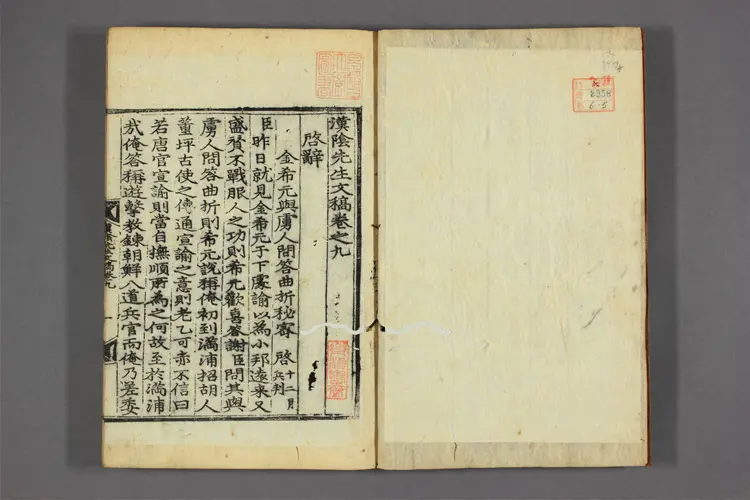 漢陰先生文稿卷之九
啓辭
金希元與虜人問答曲折秘密 啓 十二月 兵判
臣昨日就見金希元于下處諭以為小邦遠來又
盛贊不戰服人之功則希元歡喜答謝臣問其與
虜人問答曲折則希元說稱俺初到滿浦招胡人
董坪古使之傳通宣諭之意則老乙可赤不信曰
若唐官宣諭則當自撫順所為之何故至於滿浦
哉俺答稱遊擊教鍊朝鮮八道兵官而俺乃差委
8358
6-5